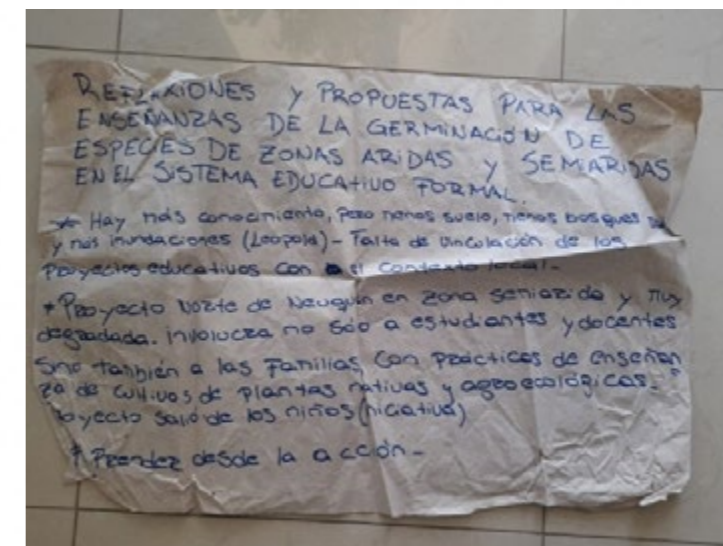 REFLEXIONES Y PROPUESTAS PARA LAS
ENSEÑANZAS DE LA GERMINACIÓN DE
ESPECIES DE ZONAS ARIDAS Y SEMIARIDAS
EN EL SISTEMA EDUCATIVO FORMAL.
* Hay más conocimiento, pero menos suelo, menos bosques
y más inundaciones (Leopold) - Falta de vinculación de los
proyectos educativos con el contexto local-
* Proyecto Norte de Neuquén en zona semiarida y muy
degradada. involucra no sólo a estudiantes y docentes
Sino también a las familias, con prácticas de enseñan
za de cultivos de plantas nativas y agroecológicas.
royecto salió de los niños (niciativa)
* Prender desde la acción-